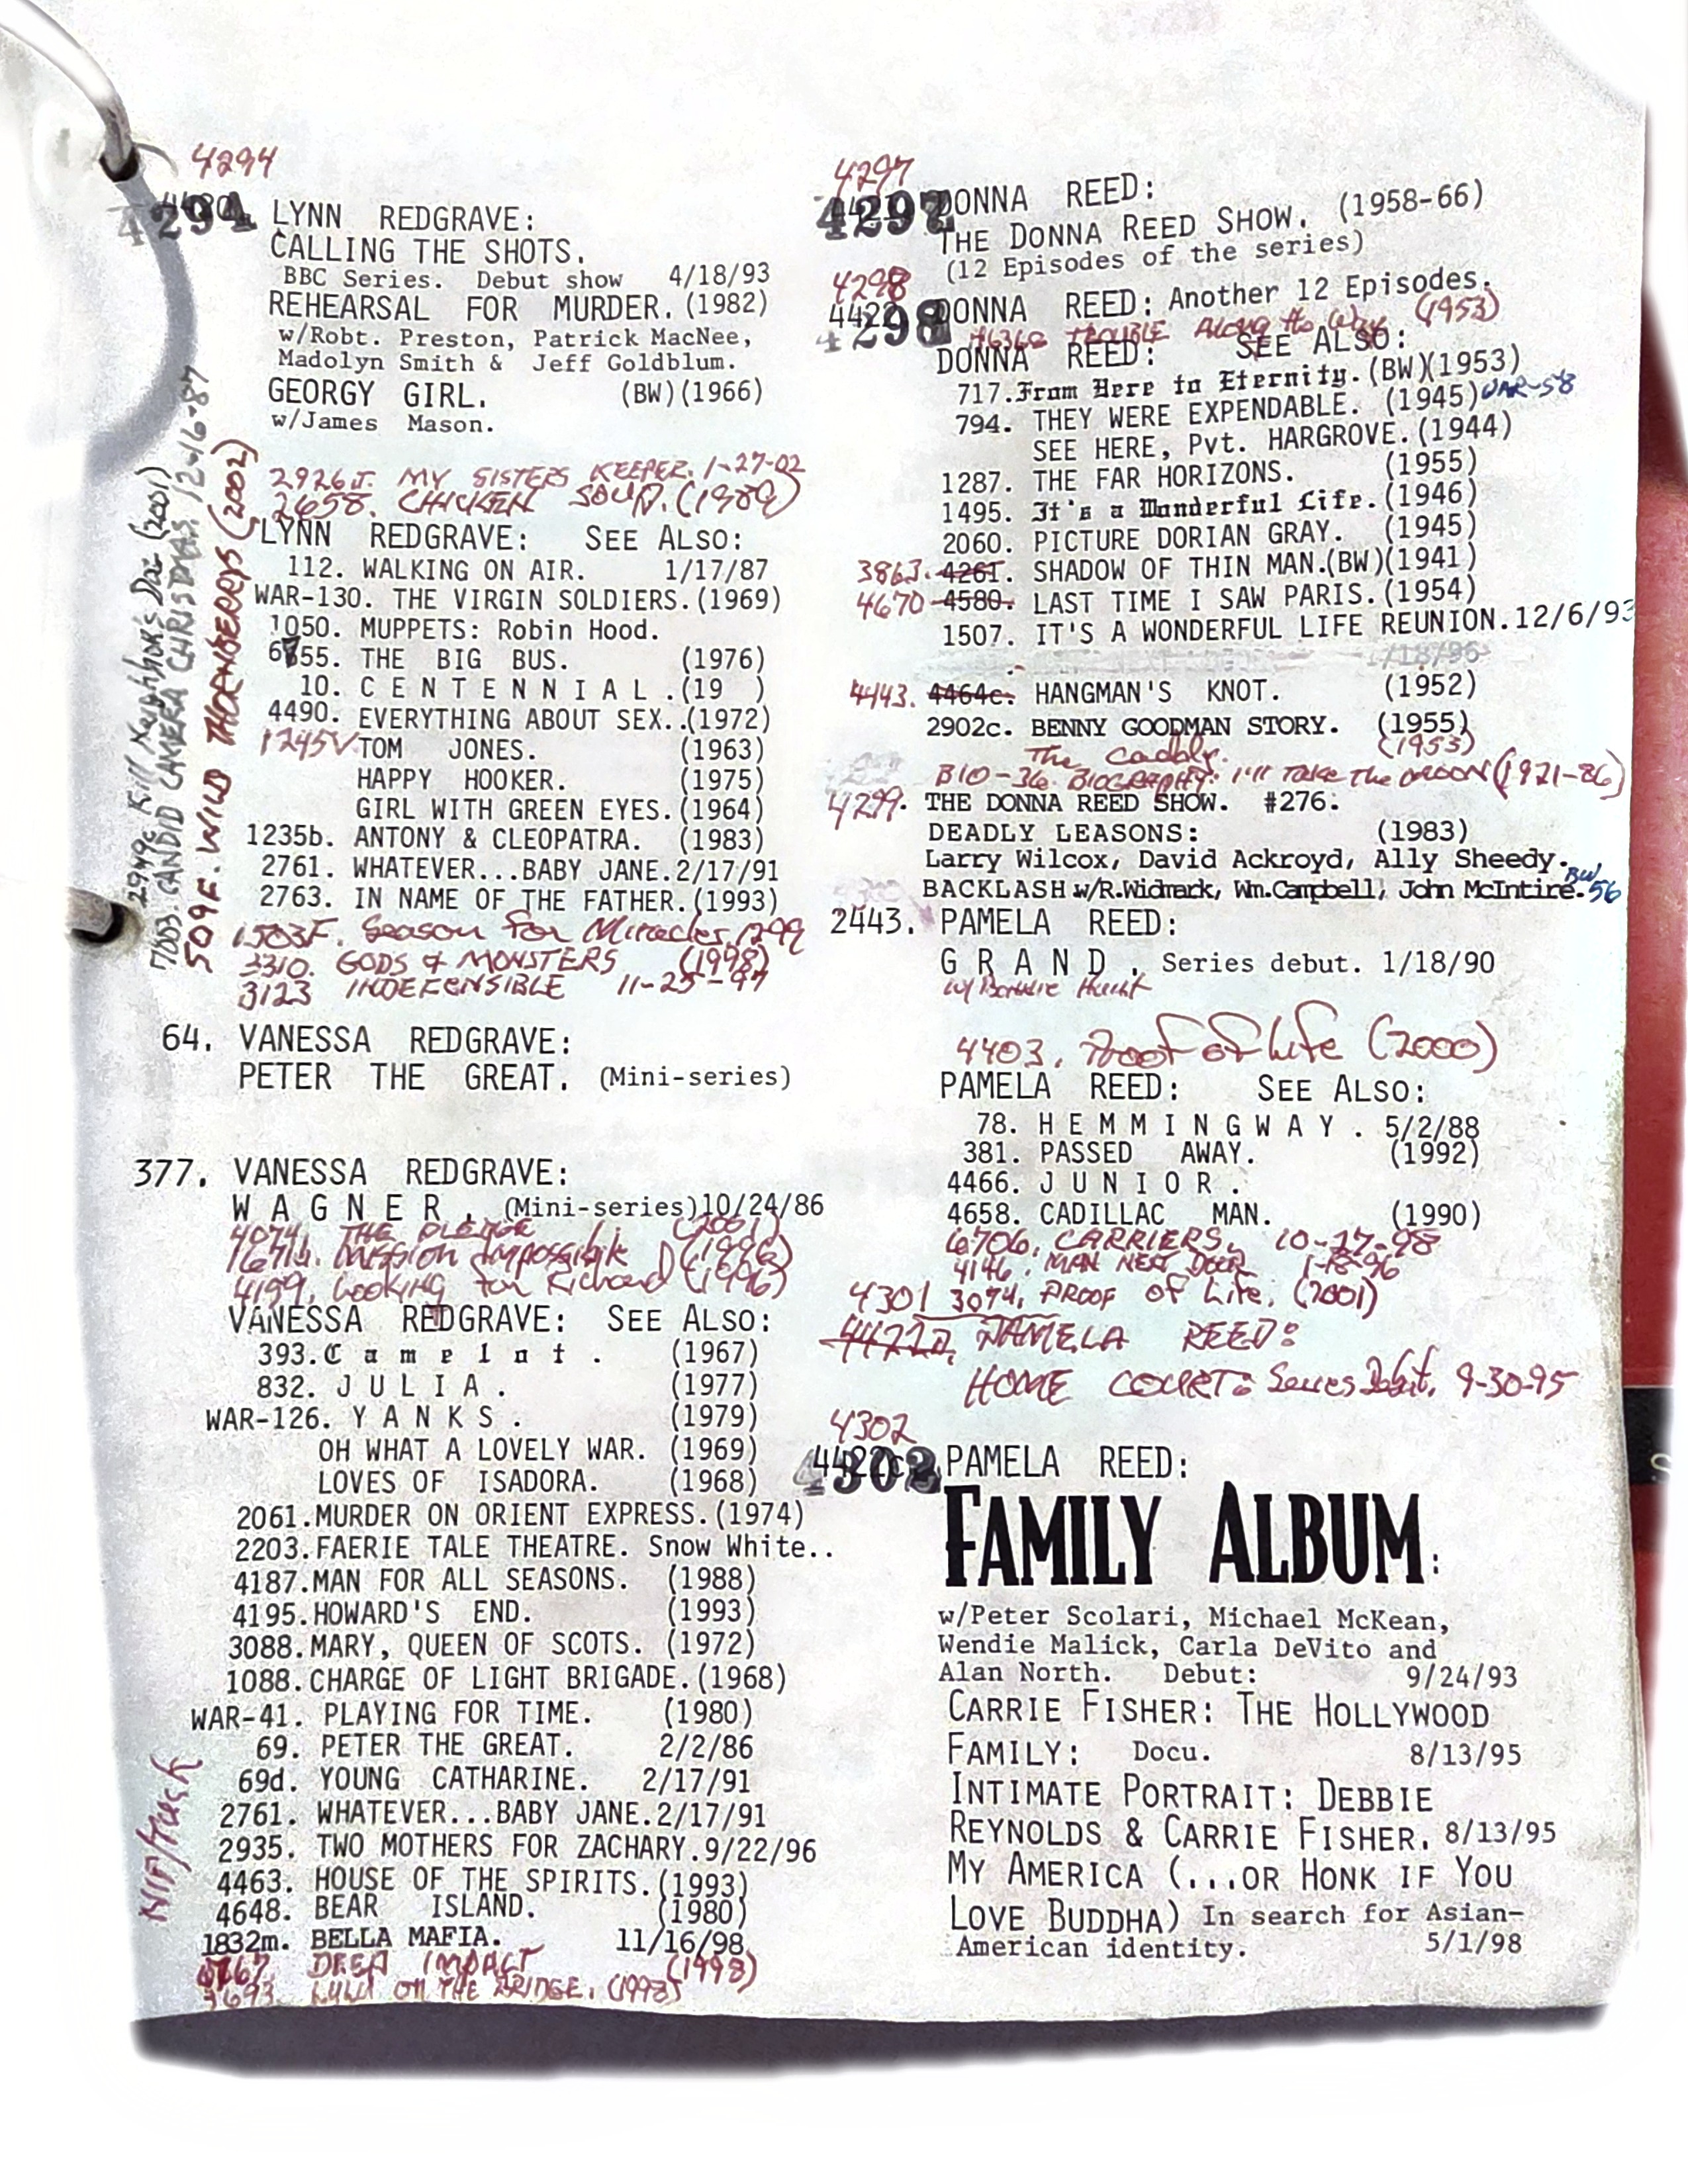 4294
4294 LYNN REDGRAVE:
CALLING THE SHOTS.
BBC Series. Debut show 4/18/93
REHEARSAL FOR MURDER. (1982)
w/Robt. Preston, Patrick MacNee,
Madolyn Smith & Jeff Goldblum.
GEORGY GIRL. (BW)(1966)
w/James Mason.
2926J. MY SISTERS KEEPER. 1-27-02
2658. CHICKEN SOUP. (1989)
LYNN REDGRAVE: SEE ALSO:
112. WALKING ON AIR. 1/17/87
WAR-130. THE VIRGIN SOLDIERS. (1969)
1050. MUPPETS: Robin Hood.
6755. THE BIG BUS. (1976)
10. C E N T E N N I A L . (19 )
4490. EVERYTHING ABOUT SEX..(1972)
1245V TOM JONES. (1963)
HAPPY HOOKER. (1975)
GIRL WITH GREEN EYES. (1964)
1235b. ANTONY & CLEOPATRA. (1983)
2761. WHATEVER...BABY JANE. 2/17/91
2763. IN NAME OF THE FATHER. (1993)
1503F. Season For Miracles. 1299
3310. GODS & MONSTERS (1998)
3123 INDEFENSIBLE 11-25-97
2949c Kill Neighbor's Dog (2001)
7003. CANDID CAMERA CHRISTMAS. 12-16-87
509F. WILD THORNBERRYS (2002)
64. VANESSA REDGRAVE:
PETER THE GREAT. (Mini-series)
377. VANESSA REDGRAVE:
W A G N E R . (Mini-series) 10/24/86
4074. THE PLEDGE (2001)
1671h. Mission Impossible (1996)
4199. Looking for Richard (1996)
VANESSA REDGRAVE: SEE ALSO:
393. C a m e l o t . (1967)
832. J U L I A . (1977)
WAR-126. Y A N K S . (1979)
OH WHAT A LOVELY WAR. (1969)
LOVES OF ISADORA. (1968)
2061. MURDER ON ORIENT EXPRESS. (1974)
2203. FAERIE TALE THEATRE. Snow White..
4187. MAN FOR ALL SEASONS. (1988)
4195. HOWARD'S END. (1993)
3088. MARY, QUEEN OF SCOTS. (1972)
1088. CHARGE OF LIGHT BRIGADE. (1968)
WAR-41. PLAYING FOR TIME. (1980)
69. PETER THE GREAT. 2/2/86
69d. YOUNG CATHARINE. 2/17/91
2761. WHATEVER...BABY JANE. 2/17/91
2935. TWO MOTHERS FOR ZACHARY. 9/22/96
4463. HOUSE OF THE SPIRITS. (1993)
4648. BEAR ISLAND. (1980)
1832m. BELLA MAFIA. 11/16/98
DEEP IMPACT (1998)
LULU ON THE BRIDGE. (1998)
NIP/Tuck
4297
4297 DONNA REED:
THE DONNA REED SHOW. (1958-66)
(12 Episodes of the series)
4298
4298 DONNA REED: Another 12 Episodes.
TROUBLE Along the Way (1953)
DONNA REED: SEE ALSO:
717. From Here to Eternity. (BW)(1953)
794. THEY WERE EXPENDABLE. (1945) WAR-58
SEE HERE, Pvt. HARGROVE. (1944)
1287. THE FAR HORIZONS. (1955)
1495. It's a Wonderful Life. (1946)
2060. PICTURE DORIAN GRAY. (1945)
3863. 4261. SHADOW OF THIN MAN. (BW)(1941)
4670 4580. LAST TIME I SAW PARIS. (1954)
1507. IT'S A WONDERFUL LIFE REUNION. 12/6/93
1/18/96
4443. 4464c. HANGMAN'S KNOT. (1952)
2902c. BENNY GOODMAN STORY. (1955)
The Caddy. (1953)
BIO-36. BIOGRAPHY: I'll Take the Moon (1921-86)
4299. THE DONNA REED SHOW. #276.
DEADLY LEASONS: (1983)
Larry Wilcox, David Ackroyd, Ally Sheedy.
BACKLASH w/R.Widmark, Wm.Campbell, John McIntire. BW 56
2443. PAMELA REED:
G R A N D . Series debut. 1/18/90
w/ Bonnie Hunt
4403. Proof of Life (2000)
PAMELA REED: SEE ALSO:
78. H E M M I N G W A Y . 5/2/88
381. PASSED AWAY. (1992)
4466. J U N I O R .
4658. CADILLAC MAN. (1990)
6706. CARRIERS. 10-27-98
4146. MAN NEXT DOOR 1-18-96
4301 3074. PROOF of Life. (2001)
4422a. PAMELA REED:
HOME COURT: Series Debut. 9-30-95
4302
4302 PAMELA REED:
FAMILY ALBUM:
w/Peter Scolari, Michael McKean,
Wendie Malick, Carla DeVito and
Alan North. Debut: 9/24/93
CARRIE FISHER: THE HOLLYWOOD
FAMILY: Docu. 8/13/95
INTIMATE PORTRAIT: DEBBIE
REYNOLDS & CARRIE FISHER. 8/13/95
MY AMERICA (...OR HONK IF YOU
LOVE BUDDHA) In search for Asian-
American identity. 5/1/98